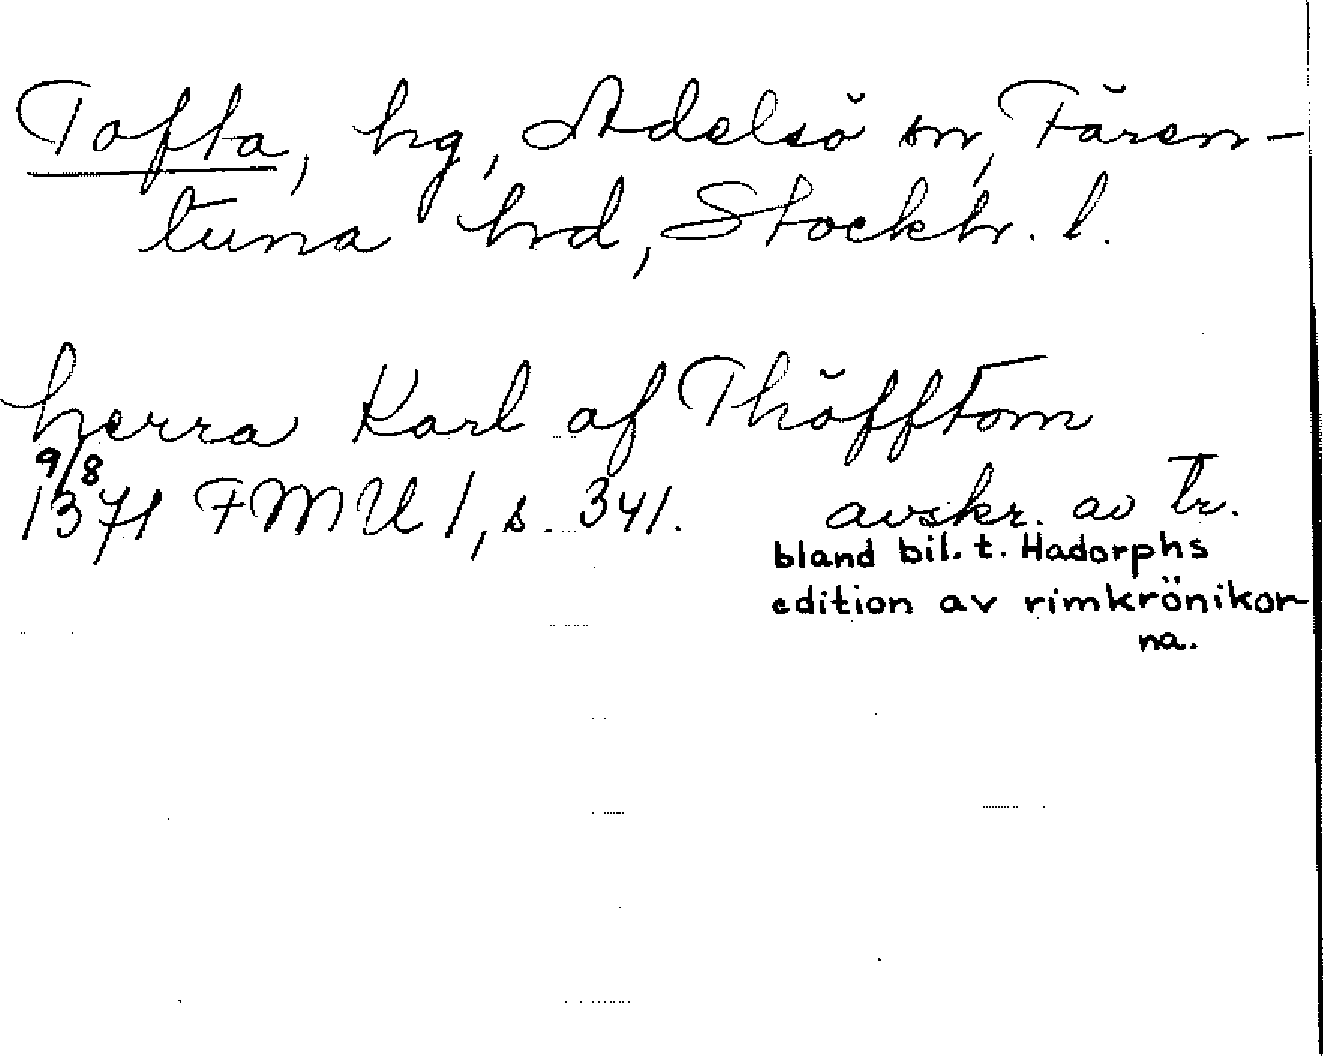 Tofta, hg, Adelsö sn, Fären-
tuna hrd, Stockh. l.
herra Karl af Thöfftom
9/8
1371 FMU 1, s. 341. avskr. av tr.
bland bil. t. Hadorphs
edition av rimkrönikor-
na.